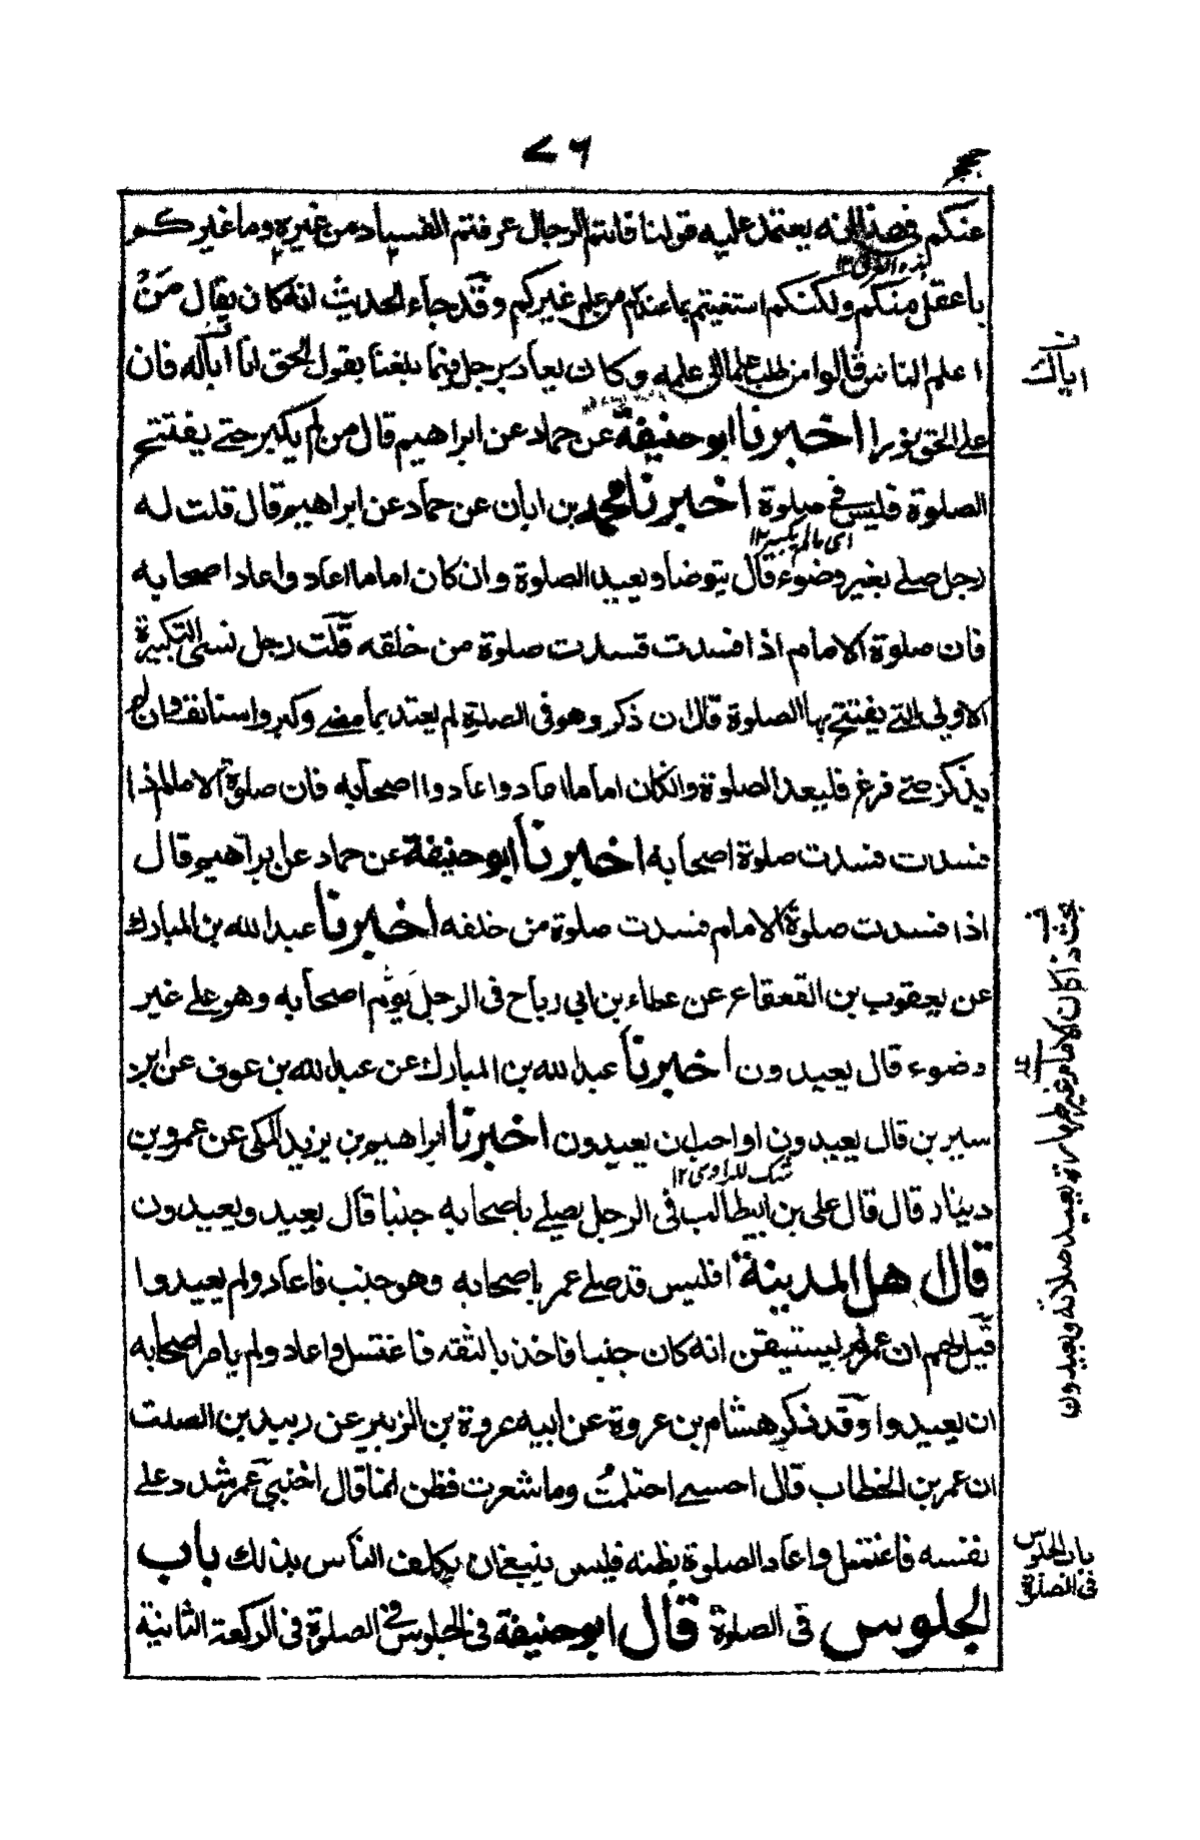 ٧٦
حجر
عنكم فصذا الذى يعتمد عليه قولنا فانتم الرجال عرفتم الفساد من غيره وما غيركم
باعقل منكم ولكنكم استغنيتم بما عندكم من علم غيركم وقد جاء الحديث انه كان يقال من
اعلم الناس قالوا من طلب علما الى علمه وكان يعاد برجل فيما بلغنا يقول الحق انا اباله فان
على الحق نورا اخبرنا ابو حنيفة عن حماد عن ابراهيم قال من لم يكبر حتى يفتتح
الصلوة فليس فى صلوة اخبرنا محمد بن ابان عن حماد عن ابراهيم قال قلت له
اى ما لم يكبر ١٢
رجل صلى بغير وضوء قال يتوضا ويعيد الصلوة وان كان اماما اعاد واعاد اصحابه
فان صلوة الامام اذا فسدت فسدت صلوة من خلفه قلت رجل نسى التكبيرة
الاولى التى يفتتح بها الصلوة قال ان ذكر وهو فى الصلوة لم يعتد بما مضى وكبر واستانف وان لم
يذكر حتى فرغ فليعد الصلوة وان كان اماما اعاد واعادوا اصحابه فان صلوة الامام اذا
فسدت فسدت صلوة اصحابه اخبرنا ابو حنيفة عن حماد عن ابراهيم قال
اذا فسدت صلوة الامام فسدت صلوة من خلفه اخبرنا عبد الله بن المبارك
عن يعقوب بن القعقاع عن عطاء بن ابي رباح فى الرجل يؤم اصحابه وهو على غير
وضوء قال يعيدون اخبرنا عبد الله بن المبارك عن عبد الله بن عوف عن ابن
سيرين قال يعيدون او احب ان يعيدون اخبرنا ابراهيم بن يزيد المكى عن عمرو بن
شك للراوى ١٢
دينار قال قال على بن ابيطالب فى الرجل يصلى باصحابه جنبا قال يعيد ويعيدون
قال هل المدينة افليس قد صلى عمر باصحابه وهو جنب فاعاد ولم يعيدوا
قيل لهم ان عمر لم يستيقن انه كان جنبا فاخذ بالثقه فاغتسل واعاد ولم يامر اصحابه
ان يعيدوا وقد ذكر هشام بن عروة عن ابيه عروة بن الزبير عن زبيد بن الصلت
ان عمر بن الخطاب قال احسبى احتلمت وما شعرت فظن انما قال اجنبى عمر شدد على
نفسه فاغتسل واعاد الصلوة بظنه فليس ينبغى ان يكلف الناس بذلك باب
الجلوس فى الصلوة قال ابو حنيفة فى الجلوس فى الصلوة فى الركعة الثانية
ن
اباك
بحث اذا كان الامام غير طهارة يعيد صلاته ويعيدون
باب الجلوس
فى الصلوة